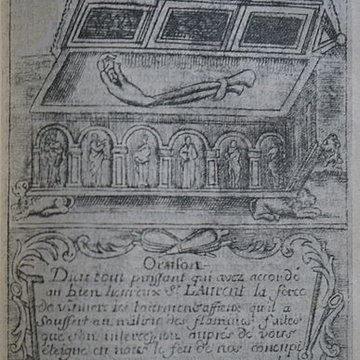 Oraison
Dieu tout puissant qui avez accordé
au bien heureux St LAURENT la force
de vaincre les tourments affreux qu'il a
souffert au milieu des flammes, faites
que son intercession auprès de vous
éteigne en nous le feu de nos concupi